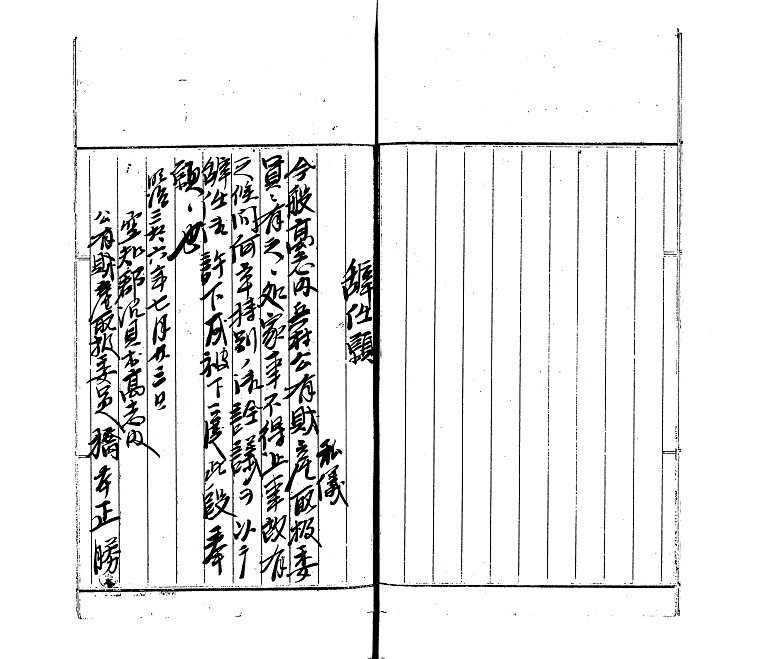 辞任願
私儀
今般高志内兵村公有財産取扱委
員ニ有之候処家事不得止事故有
之候間何卒特別ノ御詮議ヲ以テ
辞任御許下成被下度此段奉
願候也
明治三十六年七月廿三日
空知郡沼貝村高志内
公有財産取扱委員 橋本正勝